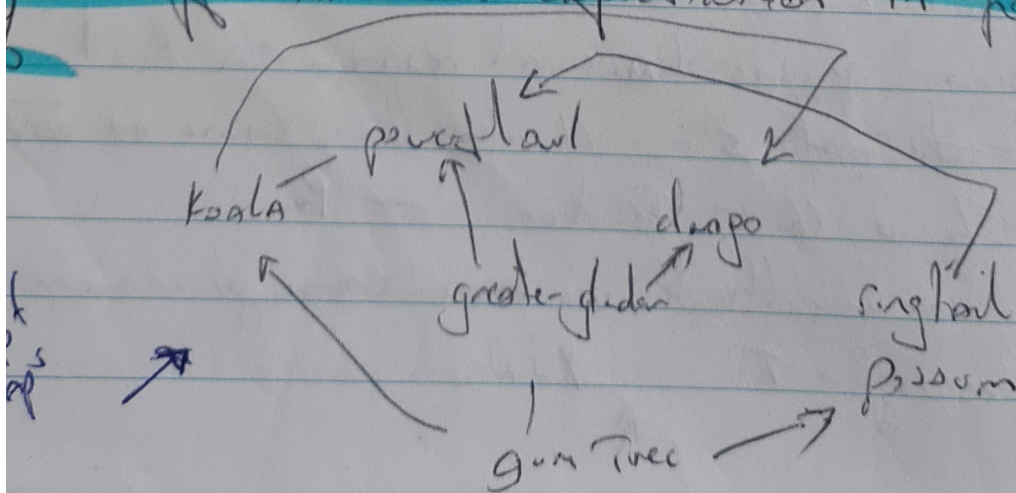 powerful owl
koala
dingo
greater glider
ringtail
possum
gum Tree